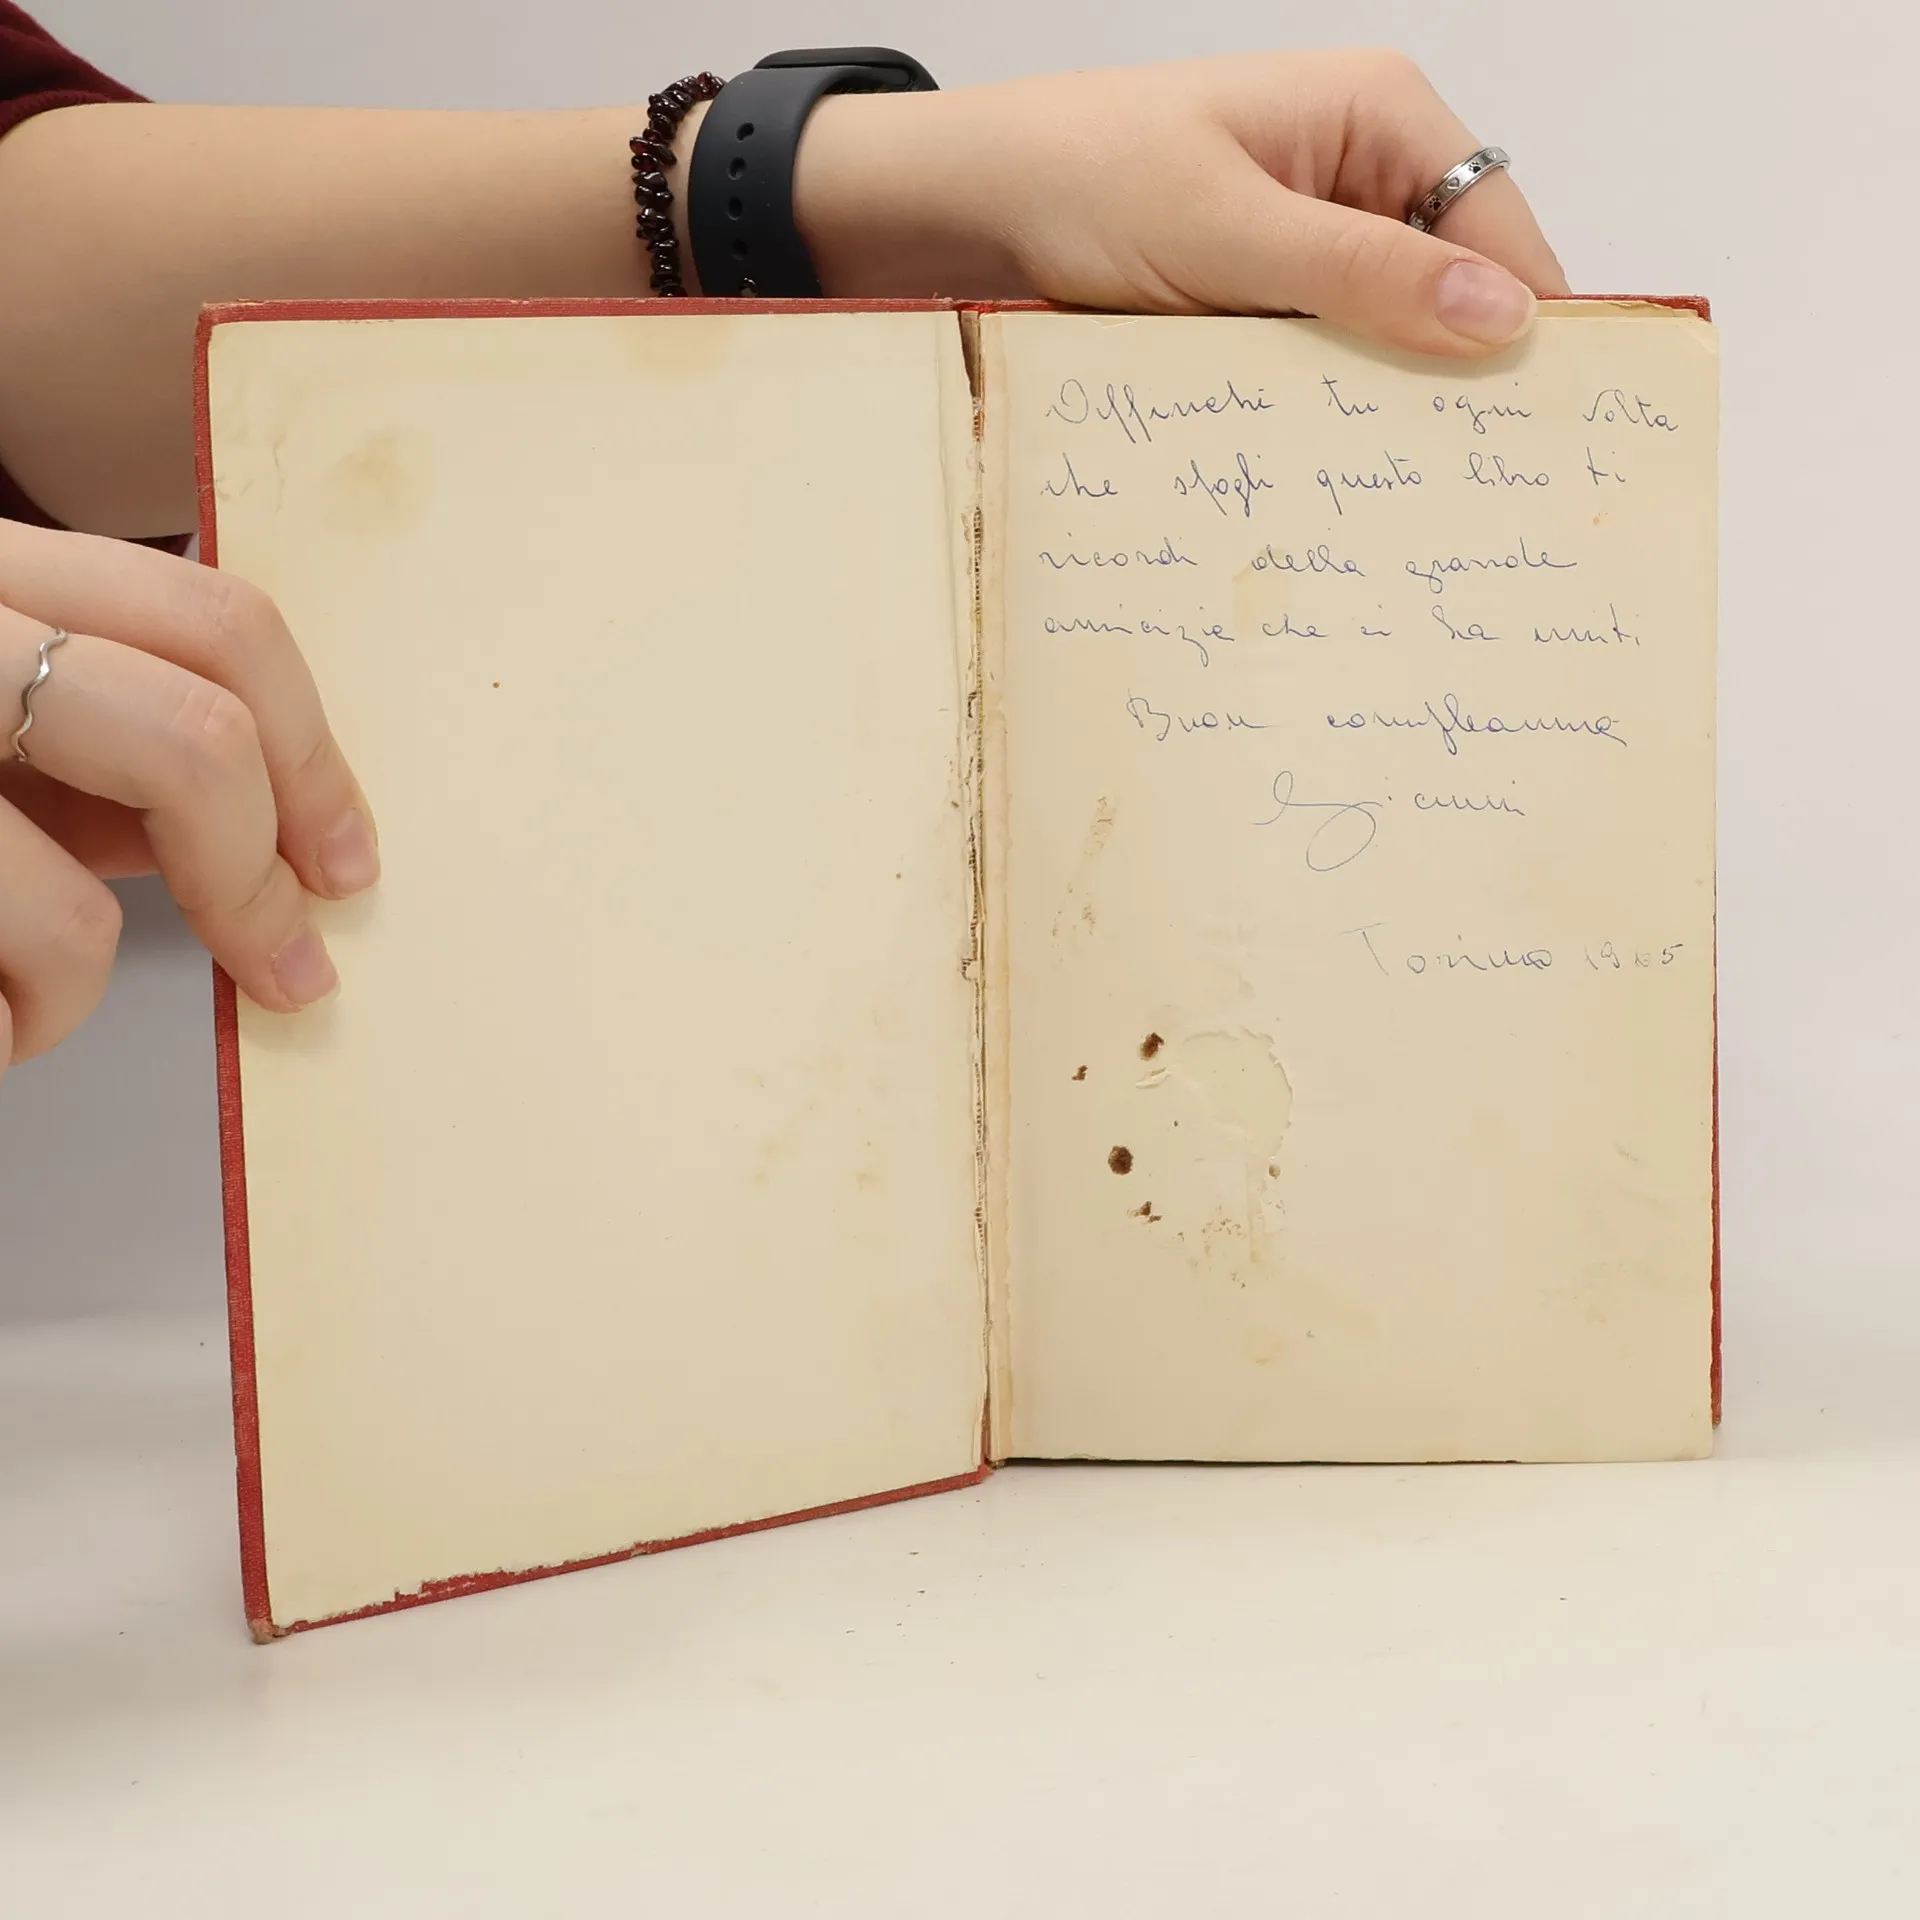 Affinché tu ogni volta
che sfogli questo libro ti
ricordi della grande
amicizia che ci ha uniti
Buon compleanno
Gianni
Torino 1965